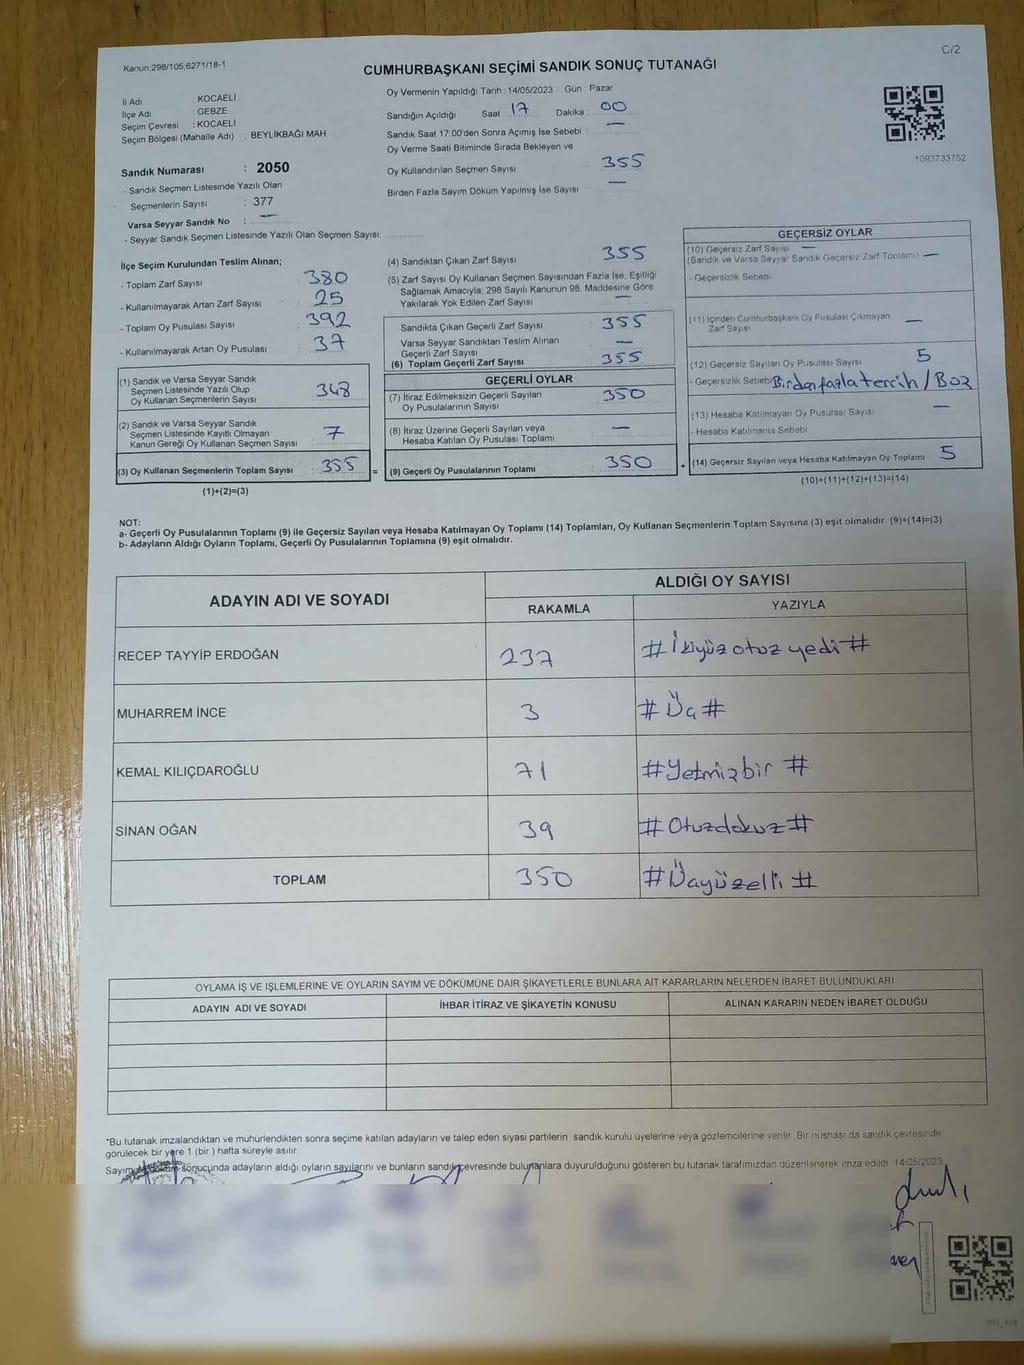 Kanun:298/105;6271/18-1
C/2
CUMHURBAŞKANI SEÇİMİ SANDIK SONUÇ TUTANAĞI
İl Adı : KOCAELİ
İlçe Adı : GEBZE
Seçim Çevresi : KOCAELİ
Seçim Bölgesi (Mahalle Adı) : BEYLİKBAĞI MAH.
Sandık Numarası : 2050
- Sandık Seçmen Listesinde Yazılı Olan
Seçmenlerin Sayısı : 377
Varsa Seyyar Sandık No : —
- Seyyar Sandık Seçmen Listesinde Yazılı Olan Seçmen Sayısı:
Oy Vermenin Yapıldığı Tarih :14/05/2023 Gün : Pazar
Sandığın Açıldığı Saat 17 Dakika 00
Sandık Saat 17.00'den Sonra Açımış İse Sebebi : —
Oy Verme Saati Bitiminde Sırada Bekleyen ve
Oy Kullandırılan Seçmen Sayısı 355
Birden Fazla Sayım Döküm Yapılmış İse Sayısı —
1093733752
İlçe Seçim Kurulundan Teslim Alınan;
- Toplam Zarf Sayısı : 380
- Kullanılmayarak Artan Zarf Sayısı : 25
- Toplam Oy Pusulası Sayısı : 392
- Kullanılmayarak Artan Oy Pusulası : 37
(1) Sandık ve Varsa Seyyar Sandık
Seçmen Listesinde Yazılı Olup
Oy Kullanan Seçmenlerin Sayısı 348
(2) Sandık ve Varsa Seyyar Sandık
Seçmen Listesinde Kayıtlı Olmayan
Kanun Gereği Oy Kullanan Seçmen Sayısı 7
(3) Oy Kullanan Seçmenlerin Toplam Sayısı : 355 =
(1)+(2)=(3)
(4) Sandıktan Çıkan Zarf Sayısı : 355
(5) Zarf Sayısı Oy Kullanan Seçmen Sayısından Fazla İse, Eşitliği
Sağlamak Amacıyla; 298 Sayılı Kanunun 98. Maddesine Göre
Yakılarak Yok Edilen Zarf Sayısı : —
Sandıkta Çıkan Geçerli Zarf Sayısı : 355
Varsa Seyyar Sandıktan Teslim Alınan
Geçerli Zarf Sayısı —
(6) Toplam Geçerli Zarf Sayısı : 355
GEÇERLİ OYLAR
(7) İtiraz Edilmeksizin Geçerli Sayılan
Oy Pusulalarının Sayısı 350
(8) İtiraz Üzerine Geçerli Sayılan veya
Hesaba Katılan Oy Pusulası Toplamı —
(9) Geçerli Oy Pusulalarının Toplamı 350 +
GEÇERSİZ OYLAR
(10) Geçersiz Zarf Sayısı —
(Sandık ve Varsa Seyyar Sandık Geçersiz Zarf Toplamı) —
- Geçersizlik Sebebi
(11) İçinden Cumhurbaşkanı Oy Pusulası Çıkmayan
Zarf Sayısı —
(12) Geçersiz Sayılan Oy Pusulası Sayısı 5
- Geçersizlik Sebebi Birden fazla tercih / Boş
(13) Hesaba Katılmayan Oy Pusulası Sayısı —
- Hesaba Katılmama Sebebi
(14) Geçersiz Sayılan veya Hesaba Katılmayan Oy Toplamı 5
(10)+(11)+(12)+(13)=(14)
NOT:
a- Geçerli Oy Pusulalarının Toplamı (9) ile Geçersiz Sayılan veya Hesaba Katılmayan Oy Toplamı (14) Toplamları, Oy Kullanan Seçmenlerin Toplam Sayısına (3) eşit olmalıdır. (9)+(14)=(3)
b- Adayların Aldığı Oyların Toplamı, Geçerli Oy Pusulalarının Toplamına (9) eşit olmalıdır.
ADAYIN ADI VE SOYADI
ALDIĞI OY SAYISI
RAKAMLA YAZIYLA
RECEP TAYYİP ERDOĞAN 237 # İkiyüz otuz yedi #
MUHARREM İNCE 3 # Üç #
KEMAL KILIÇDAROĞLU 71 # Yetmişbir #
SİNAN OĞAN 39 # Otuzdokuz #
TOPLAM 350 # Üçyüzelli #
OYLAMA İŞ VE İŞLEMLERİNE VE OYLARIN SAYIM VE DÖKÜMÜNE DAİR ŞİKAYETLERLE BUNLARA AİT KARARLARIN NELERDEN İBARET BULUNDUKLARI
ADAYIN ADI VE SOYADI İHBAR İTİRAZ VE ŞİKAYETİN KONUSU ALINAN KARARIN NEDEN İBARET OLDUĞU
*Bu tutanak imzalandıktan ve mühürlendikten sonra seçime katılan adayların ve talep eden siyasi partilerin sandık kurulu üyelerine veya gözlemcilerine verilir. Bir nüshası da sandık çevresinde
görülecek bir yere 1 (bir ) hafta süreyle asılır.
Sayım ve döküm sonucunda adayların aldığı oyların sayılarını ve bunların sandık çevresinde bulunanlara duyurulduğunu gösteren bu tutanak tarafımızdan düzenlenerek imza edildi. 14/05/2023